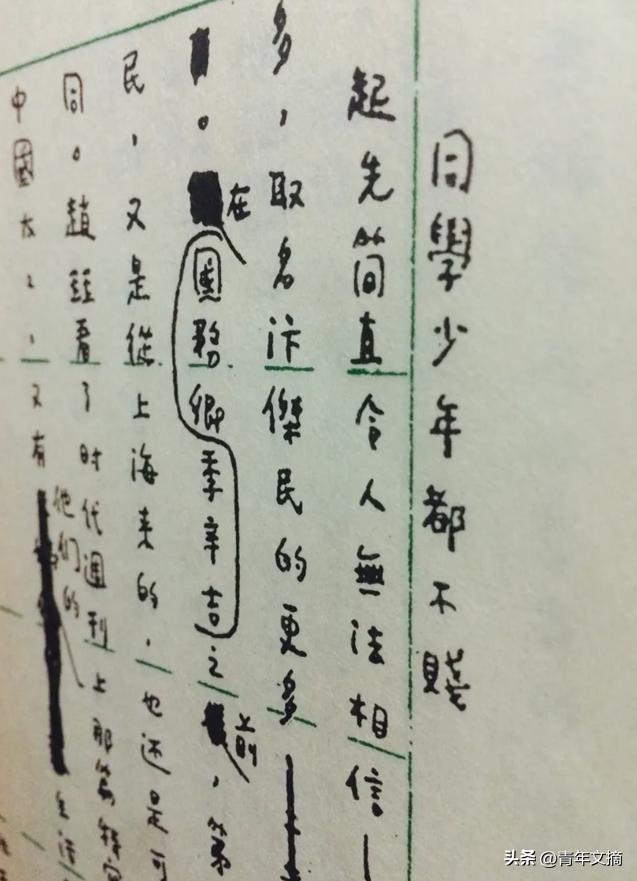 同學少年都不賤
起先简直令人無法相信—
多，取名汴傑民的更多
。在國務卿季辛吉之前，第
民，又是從上海来的，也还是可
同。趙珏看了时代週刊上那篇特寫
中國太乙，又有他们的生活
头条 @青年文摘